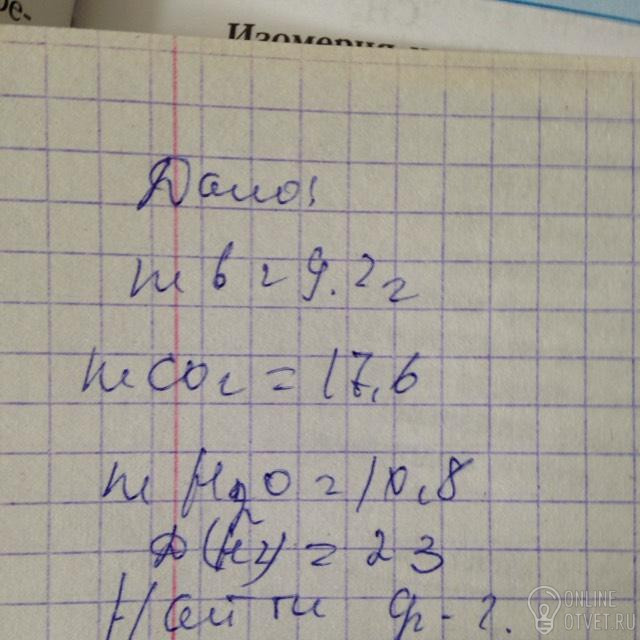 ре.
Изомерия
Дано:
m в = 9.2 г
m CO2 = 17,6
m H2O = 10,8
D(H2) = 23
Найти ф-г.
ONLINE
OTVET.RU